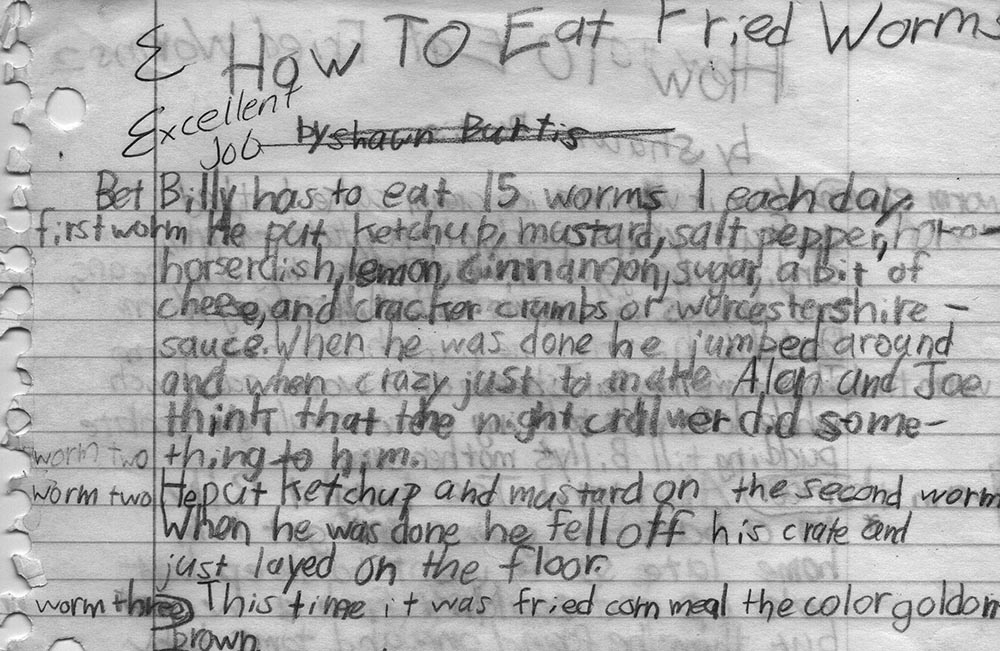 E How To Eat Fried Worms
Excellent
Job by shawn Burtis
Bet Billy has to eat 15 worms 1 each day.
first worm He put ketchup, mustard, salt pepper,
horserdish, lemon, cinnamon, sugar, a bit of
cheese, and cracker crambs or worcestershire -
sauce. When he was done he jumped around
and when crazy just to make Alan and Joe
think that the night crallwer did some-
worm two thing to him.
worm two He put ketchup and mustard on the second worm
When he was done he fell off his crate and
just layed on the floor.
worm three This time it was fried corn meal the color goldon
brown